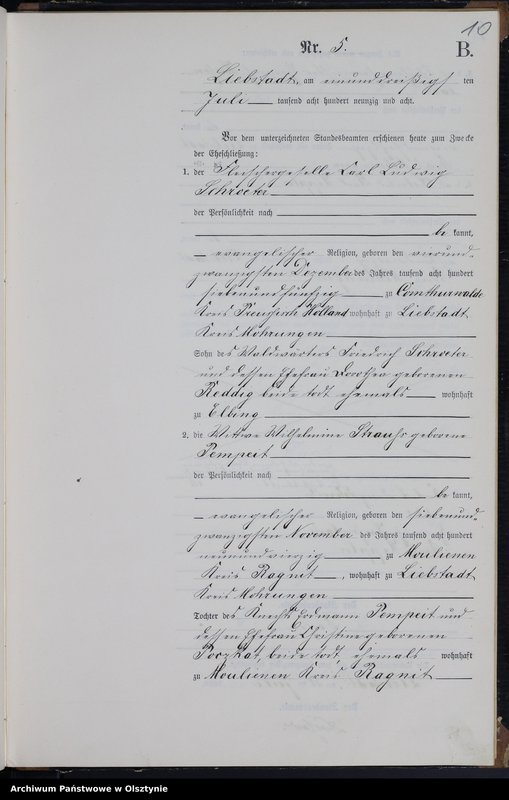 10
Nr. 5.
B.
Liebstadt, am einunddreißigs ten
Juli tausend acht hundert neunzig und acht.
Vor dem unterzeichneten Standesbeamten erschienen heute zum Zwecke
der Eheschließung:
1. der Fleischergeselle Carl Ludwig
Schroeter
der Persönlichkeit nach
be kannt,
evangelischer Religion, geboren den vierund-
zwanzigsten Dezember des Jahres tausend acht hundert
siebenundfünfzig zu Comthurwalde
Kreis Preußisch Holland wohnhaft zu Liebstadt,
Kreis Mohrungen
Sohn des Waldwärters Friedrich Schroeter
und dessen Ehefrau Dorothea geborenen
Reddig beide todt, ehemals wohnhaft
zu Elbing
2. die Wittwe Wilhelmine Strauhs geborene
Pempeit
der Persönlichkeit nach
be kannt,
evangelischer Religion, geboren den siebenund-
zwanzigsten November des Jahres tausend acht hundert
neunundvierzig zu Moulienen
Kreis Ragnit, wohnhaft zu Liebstadt,
Kreis Mohrungen
Tochter des Knechts Erdmann Pempeit und
dessen Ehefrau Christine geborenen
beide todt, ehemals wohnhaft
zu Moulienen Kreis Ragnit
Archiwum Państwowe w Olsztynie